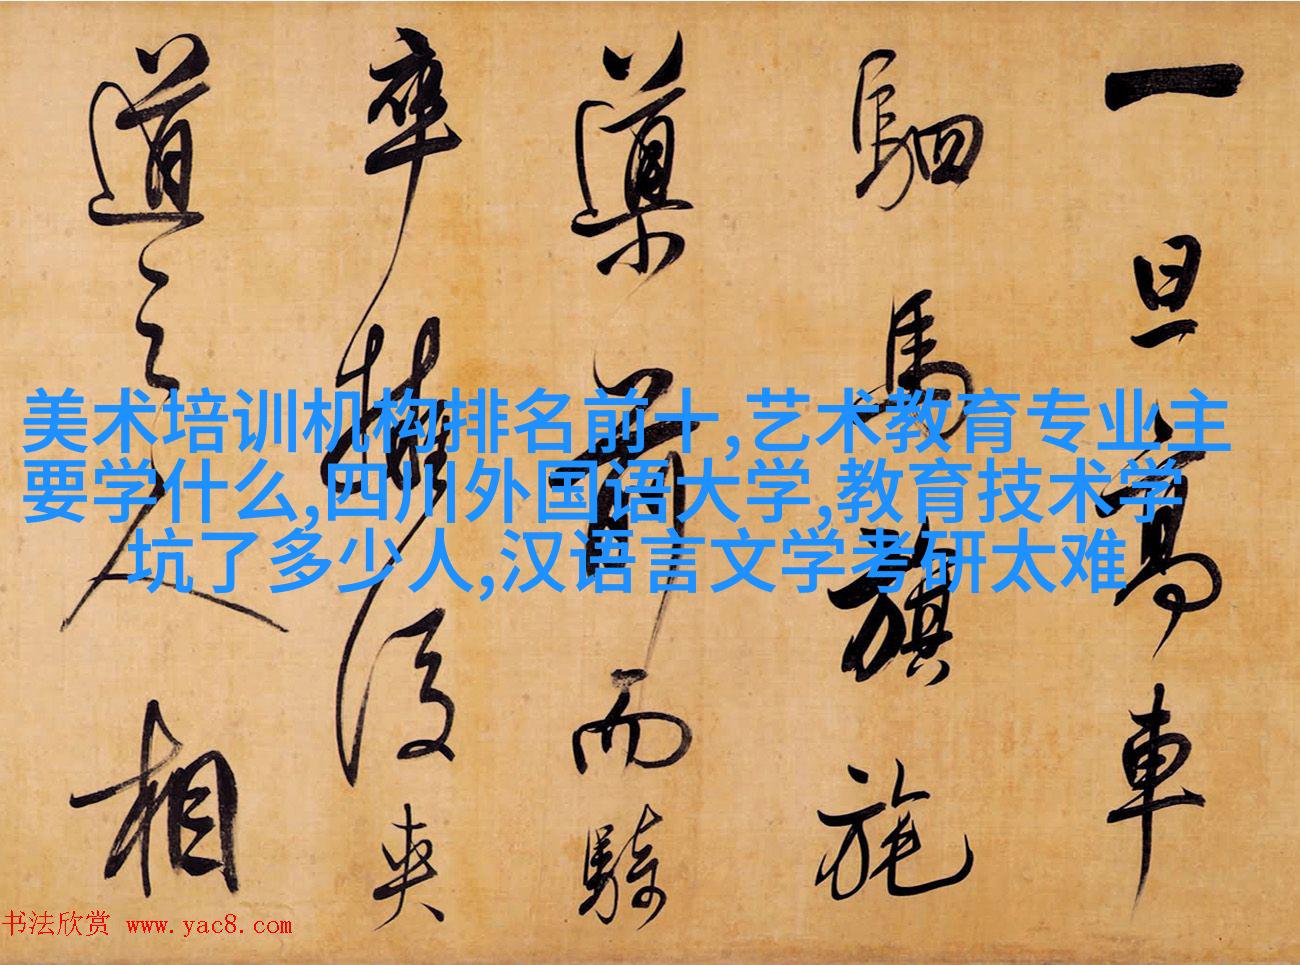 一旦高車
駟馬旗旄
導前而騎
卒擁後夾
道之人相
美术培训机构排名前十,艺术教育专业主
要学什么,四川外国语大学,教育技术学
坑了多少人,汉语言文学考研太难
书法欣赏 www.yac8.com